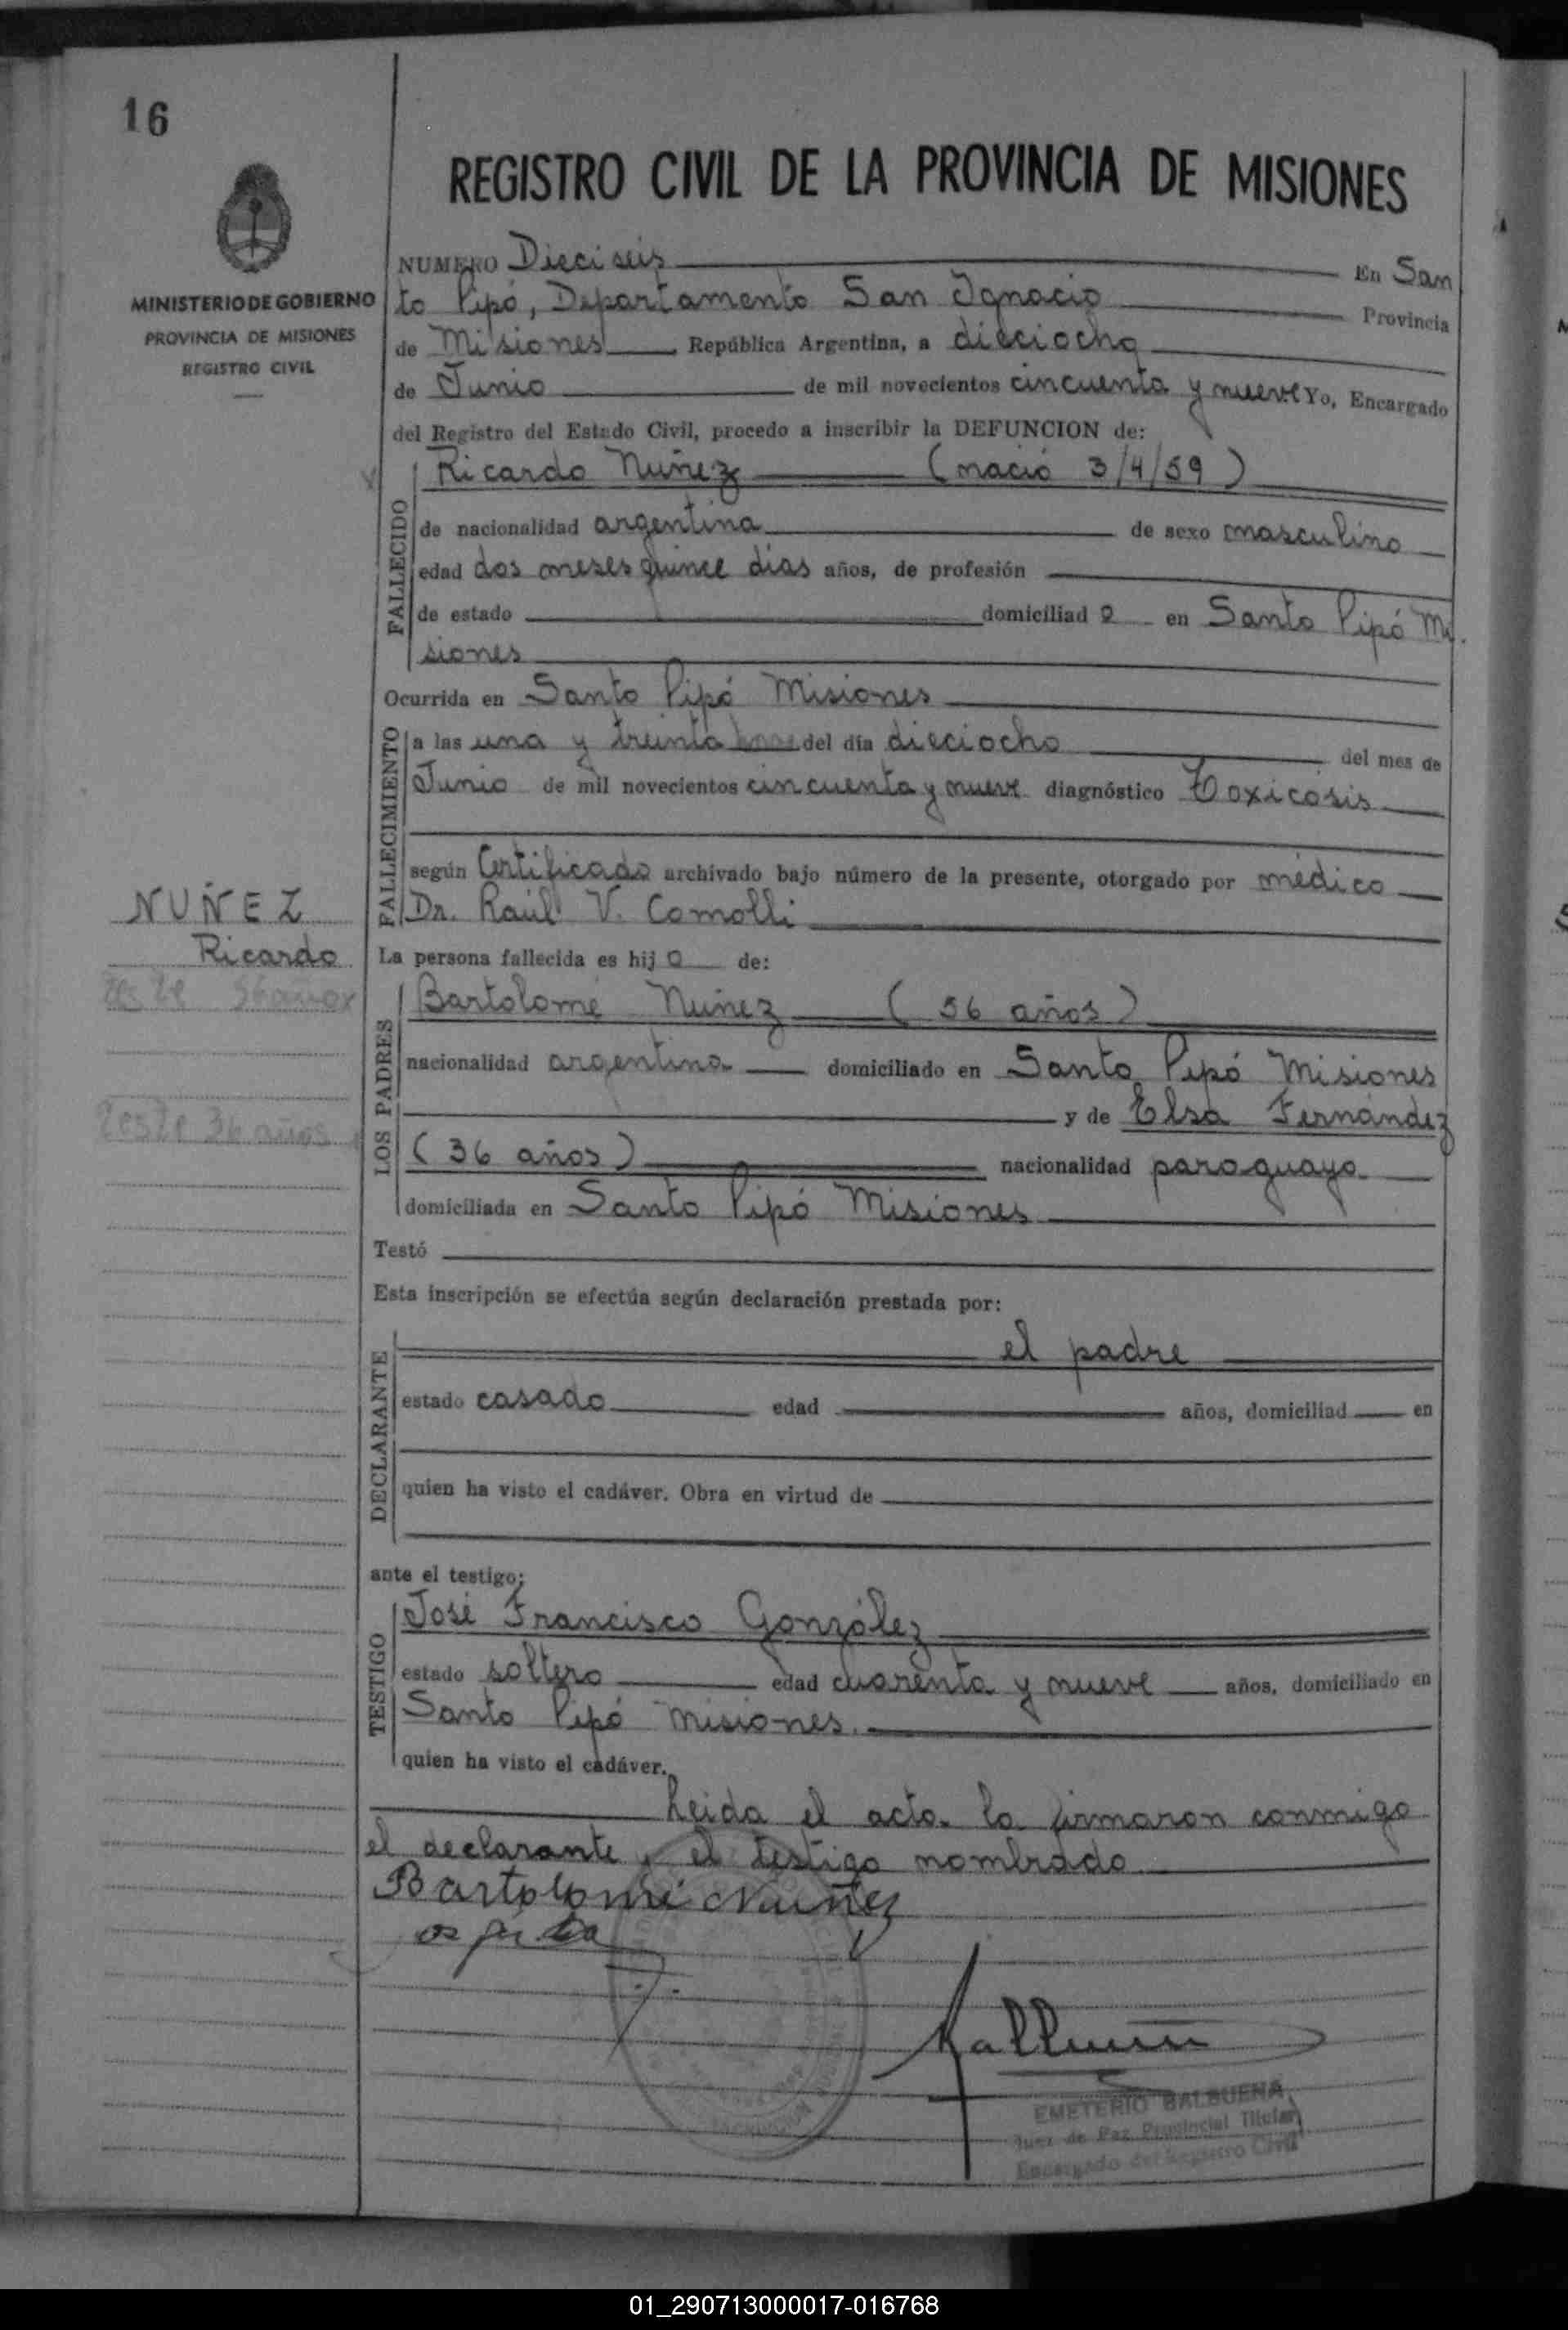 16
REGISTRO CIVIL DE LA PROVINCIA DE MISIONES
MINISTERIO DE GOBIERNO
PROVINCIA DE MISIONES
REGISTRO CIVIL
NUMERO Dieciseis En San
to Pipó, Departamento San Ignacio Provincia
de Misiones República Argentina, a dieciocho
de Junio de mil novecientos cincuenta y nueve Yo, Encargado
del Registro del Estado Civil, procedo a inscribir la DEFUNCION de:
FALLECIDO
Ricardo Nuñez (nació 3/4/59)
de nacionalidad argentina de sexo masculino
edad dos meses quince dias años, de profesión
de estado domiciliad o en Santo Pipó Mi
siones
Ocurrida en Santo Pipó Misiones
FALLECIMIENTO
a las una y treinta del día dieciocho del mes de
Junio de mil novecientos cincuenta y nueve diagnóstico Toxicosis
según Certificado archivado bajo número de la presente, otorgado por médico
Dr. Raúl V. Comolli
NUÑEZ
Ricardo
La persona fallecida es hij o de:
LOS PADRES
Bartolomé Nuñez (56 años)
nacionalidad argentina domiciliado en Santo Pipó Misiones
y de Elsa Fernández
(36 años) nacionalidad paraguaya
domiciliada en Santo Pipó Misiones
56 años
36 años
Testó
Esta inscripción se efectúa según declaración prestada por:
DECLARANTE
el padre
estado casado edad años, domiciliad en
quien ha visto el cadáver. Obra en virtud de
ante el testigo:
TESTIGO
José Francisco González
estado soltero edad cuarenta y nueve años, domiciliado en
Santo Pipó Misiones.
quien ha visto el cadáver.
Leida el acta la firmaron conmigo
el declarante y el testigo nombrado
Bartolomé Nuñez
EMETERIO BALBUENA
Juez de Paz Provincial Titular
Encargado del Registro Civil
01_290713000017-016768